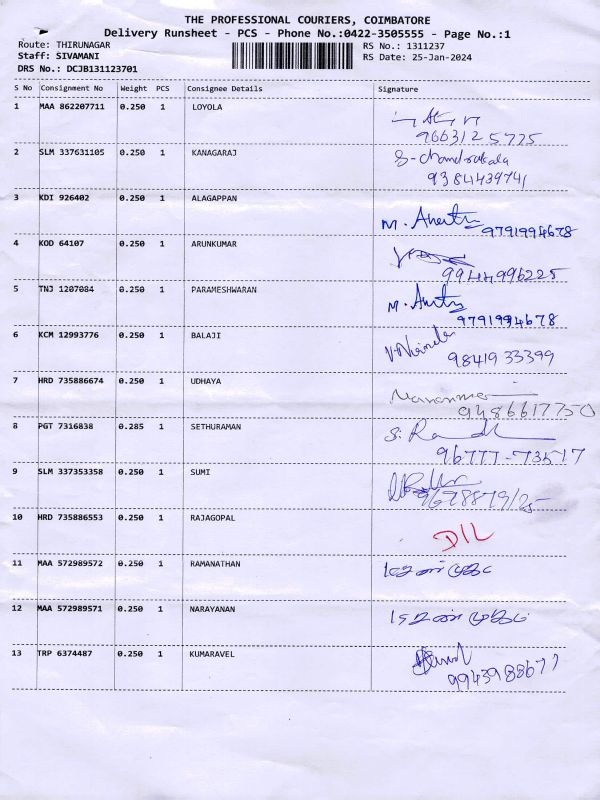 THE PROFESSIONAL COURIERS, COIMBATORE
Delivery Runsheet - PCS - Phone No.:0422-3505555 - Page No.:1
Route: THIRUNAGAR RS No.: 1311237
Staff: SIVAMANI RS Date: 25-Jan-2024
DRS No.: DCJB131123701
S No Consignment No Weight PCS Consignee Details Signature
1 MAA 862207711 0.250 1 LOYOLA
9663125775
2 SLM 337631105 0.250 1 KANAGARAJ S-chandrakala
9384439741
3 KDI 926402 0.250 1 ALAGAPPAN
9791994678
4 KOD 64107 0.250 1 ARUNKUMAR
9944996225
5 TNJ 1207084 0.250 1 PARAMESHWARAN
9791994678
6 KCM 12993776 0.250 1 BALAJI
9841933399
7 HRD 735886674 0.250 1 UDHAYA
9486617750
8 PGT 7316838 0.285 1 SETHURAMAN
96777-73517
9 SLM 337353358 0.250 1 SUMI
10 HRD 735886553 0.250 1 RAJAGOPAL DIL
11 MAA 572989572 0.250 1 RAMANATHAN
12 MAA 572989571 0.250 1 NARAYANAN
13 TRP 6374487 0.250 1 KUMARAVEL
9943988677